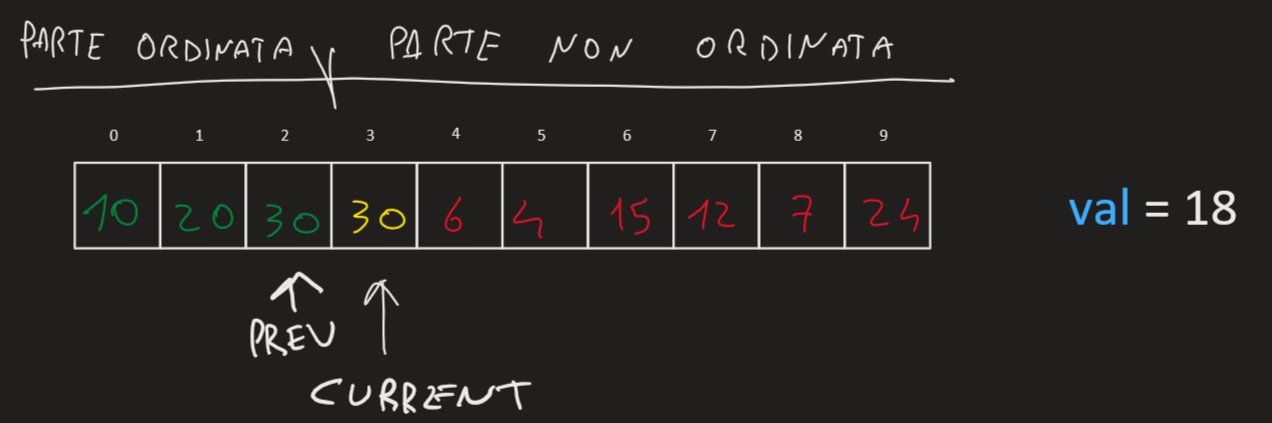 PARTE ORDINATA PARTE NON ORDINATA
0 1 2 3 4 5 6 7 8 9
10 20 30 30 6 4 15 12 7 24
val = 18
PREV
CURRENT